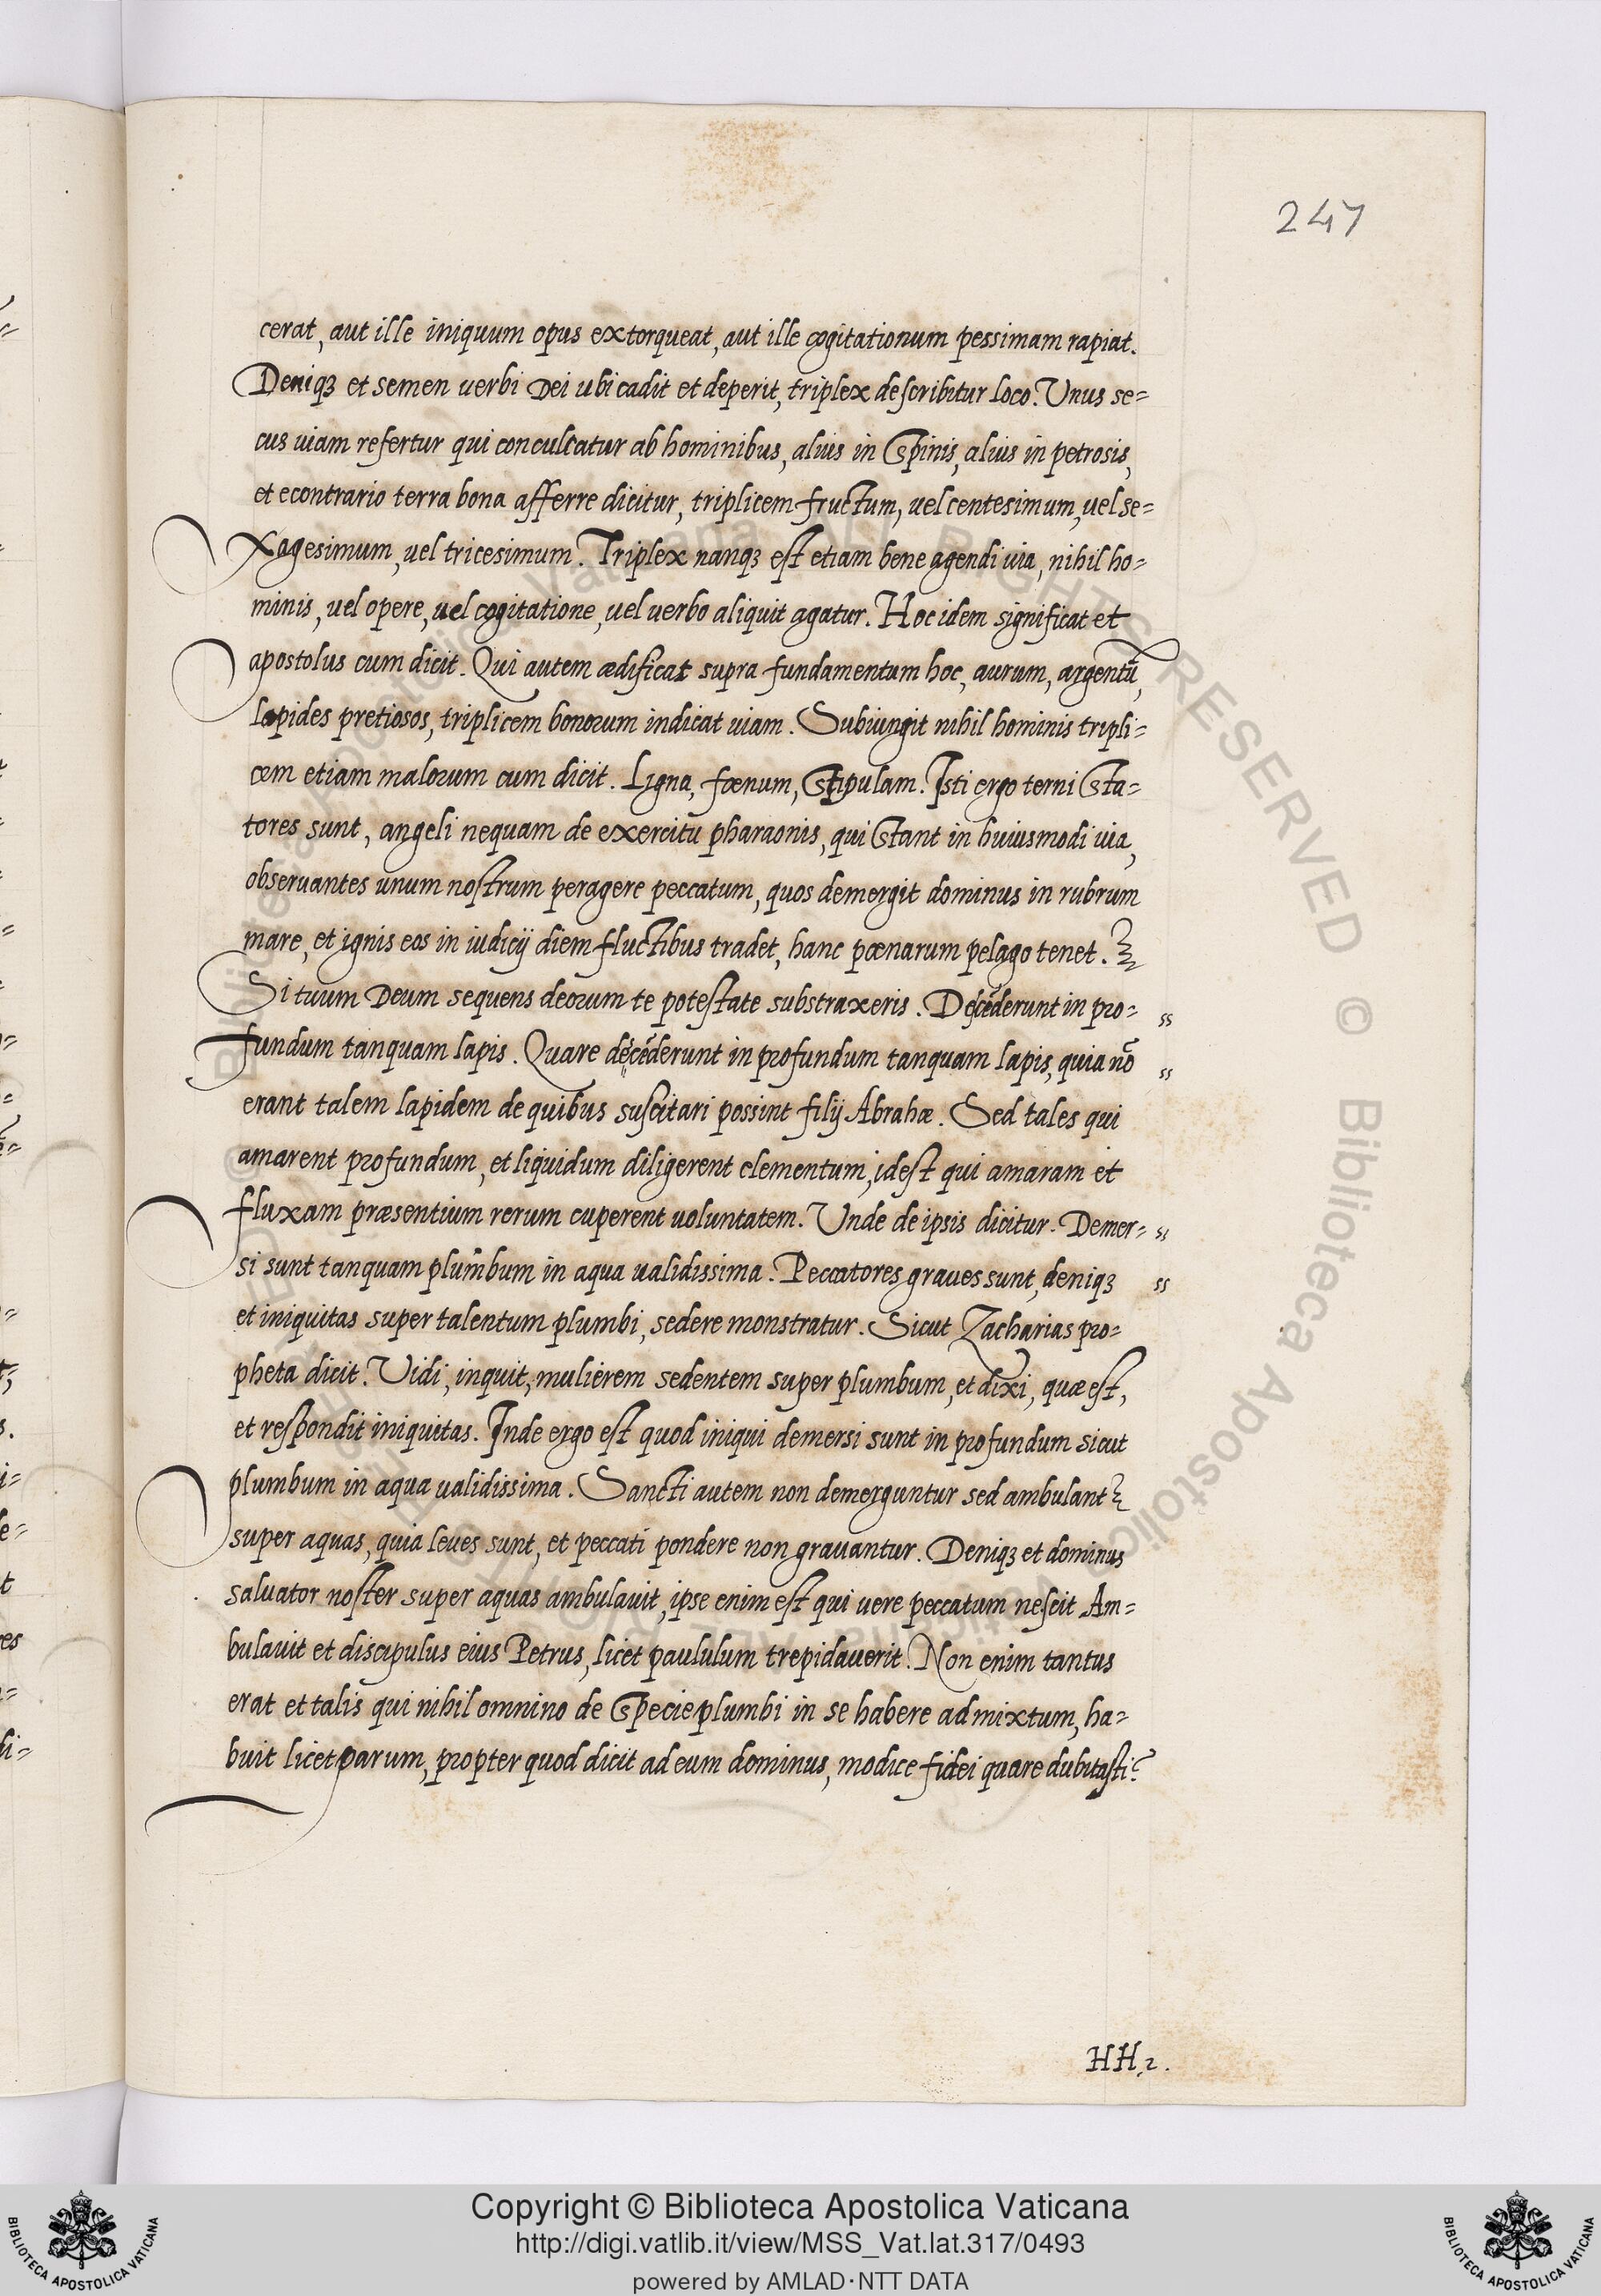 247
cerat, aut ille iniquum opus extorqueat, aut ille cogitationum pessimam rapiat.
Deniqꝫ et semen uerbi Dei ubi cadit et deperit, triplex describitur loco. Unus se=
cus uiam refertur qui conculcatur ab hominibus, alius in Spinis, alius in petrosis,
et econtrario terra bona afferre dicitur, triplicem fructum, uel centesimum, uel se=
xagesimum, uel tricesimum. Triplex nanqꝫ est etiam bene agendi uia, nihil ho=
minis, uel opere, uel cogitatione, uel uerbo aliquit agatur. Hoc idem significat et
apostolus cum dicit. Qui autem ædificat supra fundamentum hoc, aurum, argentū,
lapides pretiosos, triplicem bonorum indicat uiam. Subiungit nihil hominis tripli=
cem etiam malorum cum dicit. Ligna, fœnum, Stipulam. Isti ergo terni Sta=
tores sunt, angeli nequam de exercitu pharaonis, qui Stant in huiusmodi uia,
obseruantes unum nostrum peragere peccatum, quos demergit dominus in rubrum
mare, et ignis eos in iudicij diem fluctibus tradet, hanc pœnarum pelago tenet.
Si tuum Deum sequens deorum te potestate substraxeris. Descēderunt in pro=
fundum tanquam lapis. Quare decēderunt in profundum tanquam lapis, quia nō
erant talem lapidem de quibus suscitari possint filij Abrahæ. Sed tales qui
amarent profundum, et liquidum diligerent elementum, idest qui amaram et
fluxam præsentium rerum cuperent uoluntatem. Unde de ipsis dicitur. Demer=
si sunt tanquam plumbum in aqua ualidissima. Peccatores graues sunt, deniqꝫ
et iniquitas super talentum plumbi, sedere monstratur. Sicut Zacharias pro=
pheta dicit. Vidi, inquit, mulierem sedentem super plumbum, et dixi, quæ est,
et respondit iniquitas. Inde ergo est quod iniqui demersi sunt in profundum sicut
plumbum in aqua ualidissima. Sancti autem non demerguntur sed ambulant
super aquas, quia leues sunt, et peccati pondere non grauantur. Deniqꝫ et dominus
saluator noster super aquas ambulauit, ipse enim est qui uere peccatum nescit. Am=
bulauit et discipulus eius Petrus, licet paululum trepidauerit. Non enim tantus
erat et talis qui nihil omnino de Specie plumbi in se habere admixtum, ha=
buit licet parum, propter quod dicit ad eum dominus, modice fidei quare dubitasti?
HH.2.
Copyright © Biblioteca Apostolica Vaticana
http://digi.vatlib.it/view/MSS_Vat.lat.317/0493
powered by AMLAD·NTT DATA
BIBLIOTECA APOSTOLICA VATICANA
BIBLIOTECA APOSTOLICA VATICANA